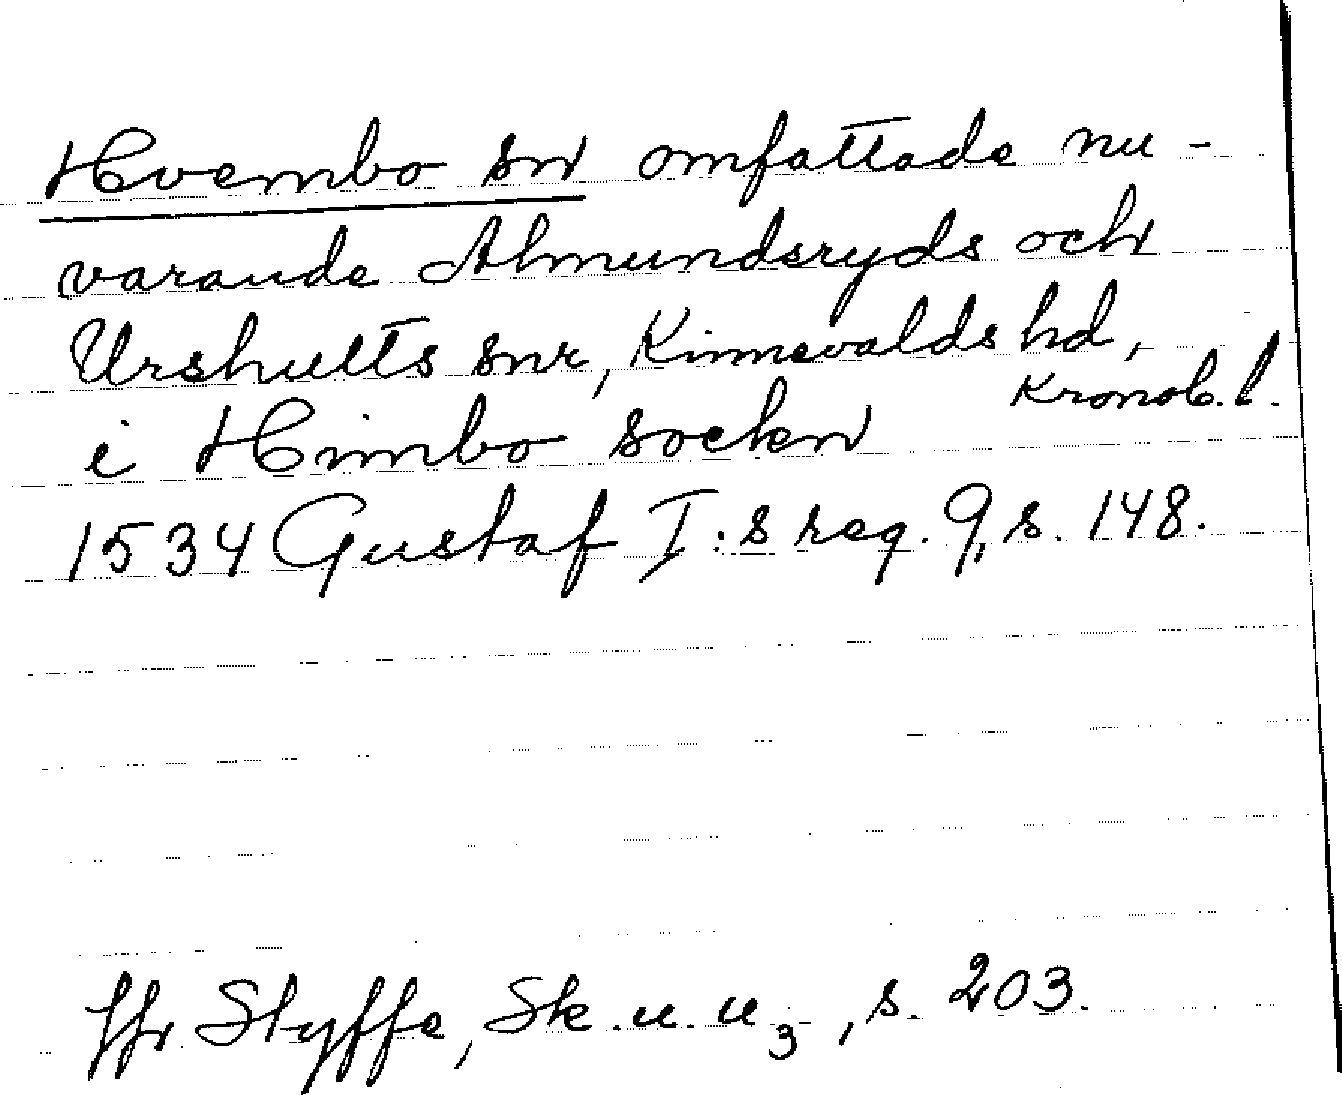 Hvembo sn omfattade nu-
varande Almundsryds och
Urshults snr, Kinnevalds hd,
Kronob. l.
i Himbo sockn
1534 Gustaf I:s reg. 9, s. 148.
Jfr Styffe, Sk. u. u 3, s. 203.